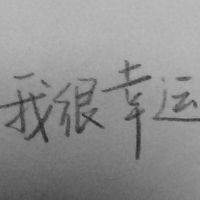 我很幸运